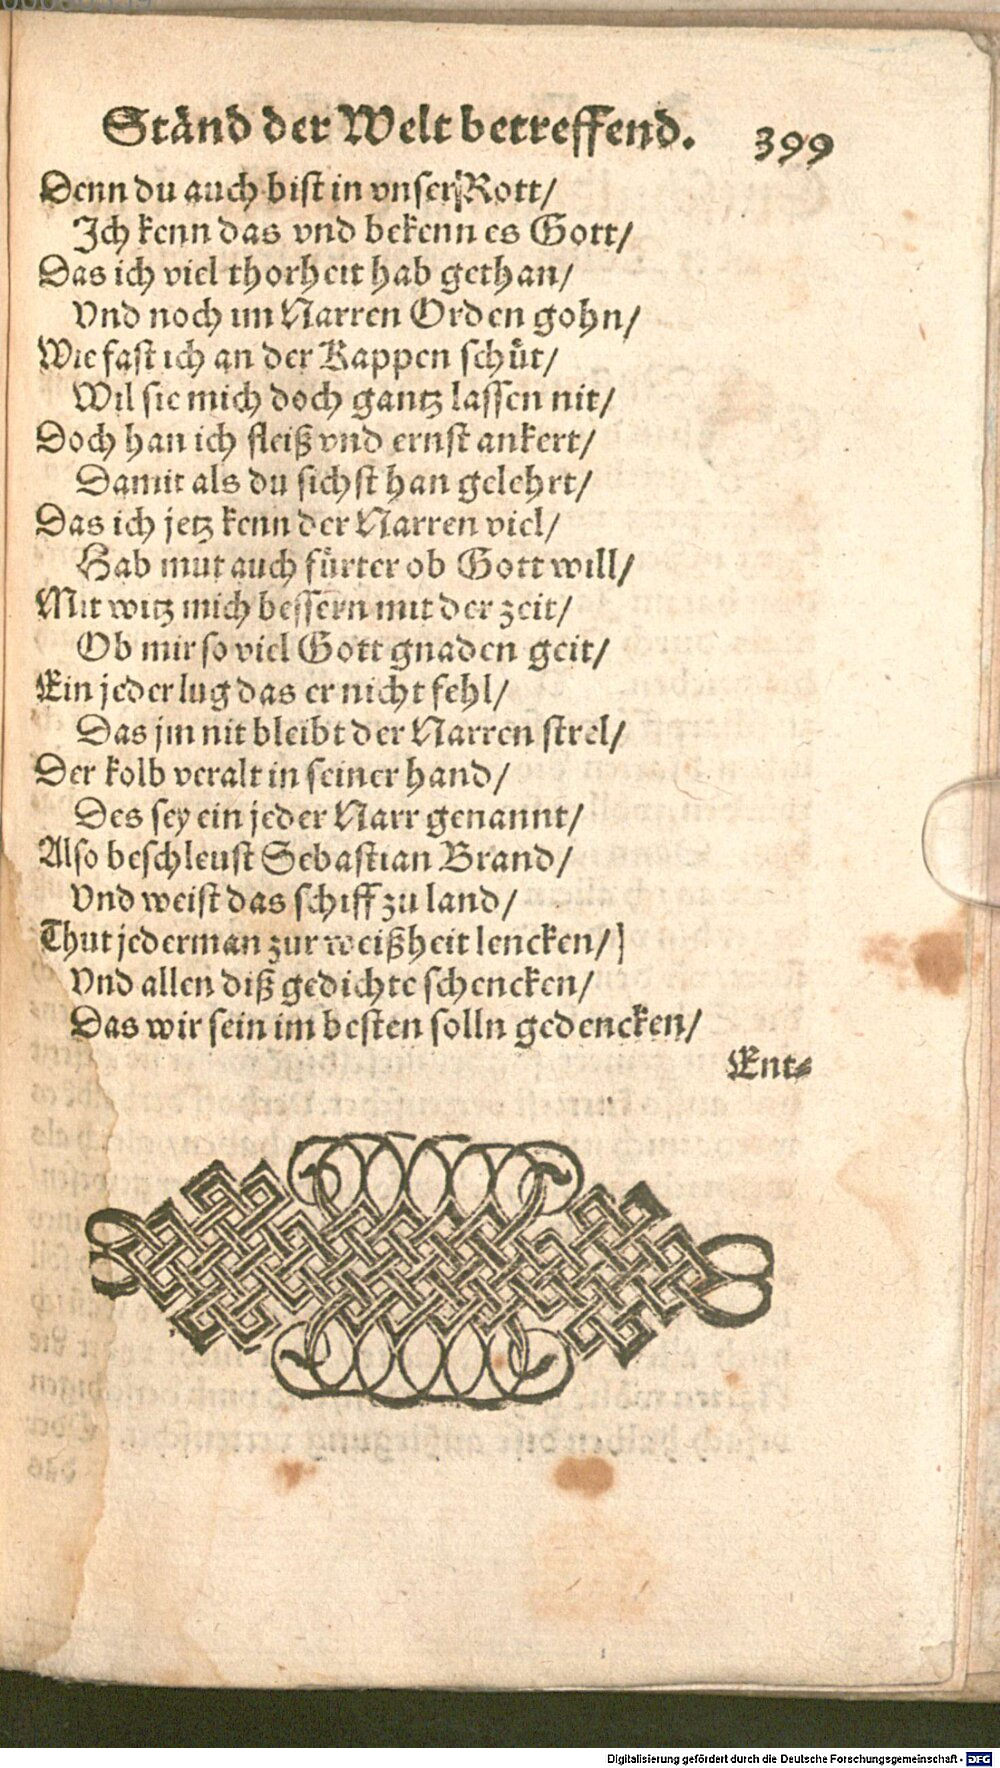 Ständ der Welt betreffend. 399
Denn du auch bist in vnser Rott/
Ich kenn das vnd bekenn es Gott/
Das ich viel thorheit hab gethan/
Vnd noch im Narren Orden gohn/
Wie fast ich an der Kappen schüt/
Wil sie mich doch gantz lassen nit/
Doch han ich fleiß vnd ernst ankert/
Damit als du sichst han gelehrt/
Das ich jetz kenn der Narren viel/
Hab mut auch fürter ob Gott will/
Mit witz mich bessern mit der zeit/
Ob mir so viel Gott gnaden geit/
Ein jeder lug das er nicht fehl/
Das jm nit bleibt der Narren strel/
Der kolb veralt in seiner hand/
Des sey ein jeder Narr genannt/
Also beschleust Sebastian Brand/
Vnd weist das schiff zu land/
Thut jederman zur weißheit lencken/
Vnd allen diß gedichte schencken/
Das wir sein im besten solln gedencken/
Ent⸗
Digitalisierung gefördert durch die Deutsche Forschungsgemeinschaft - DFG